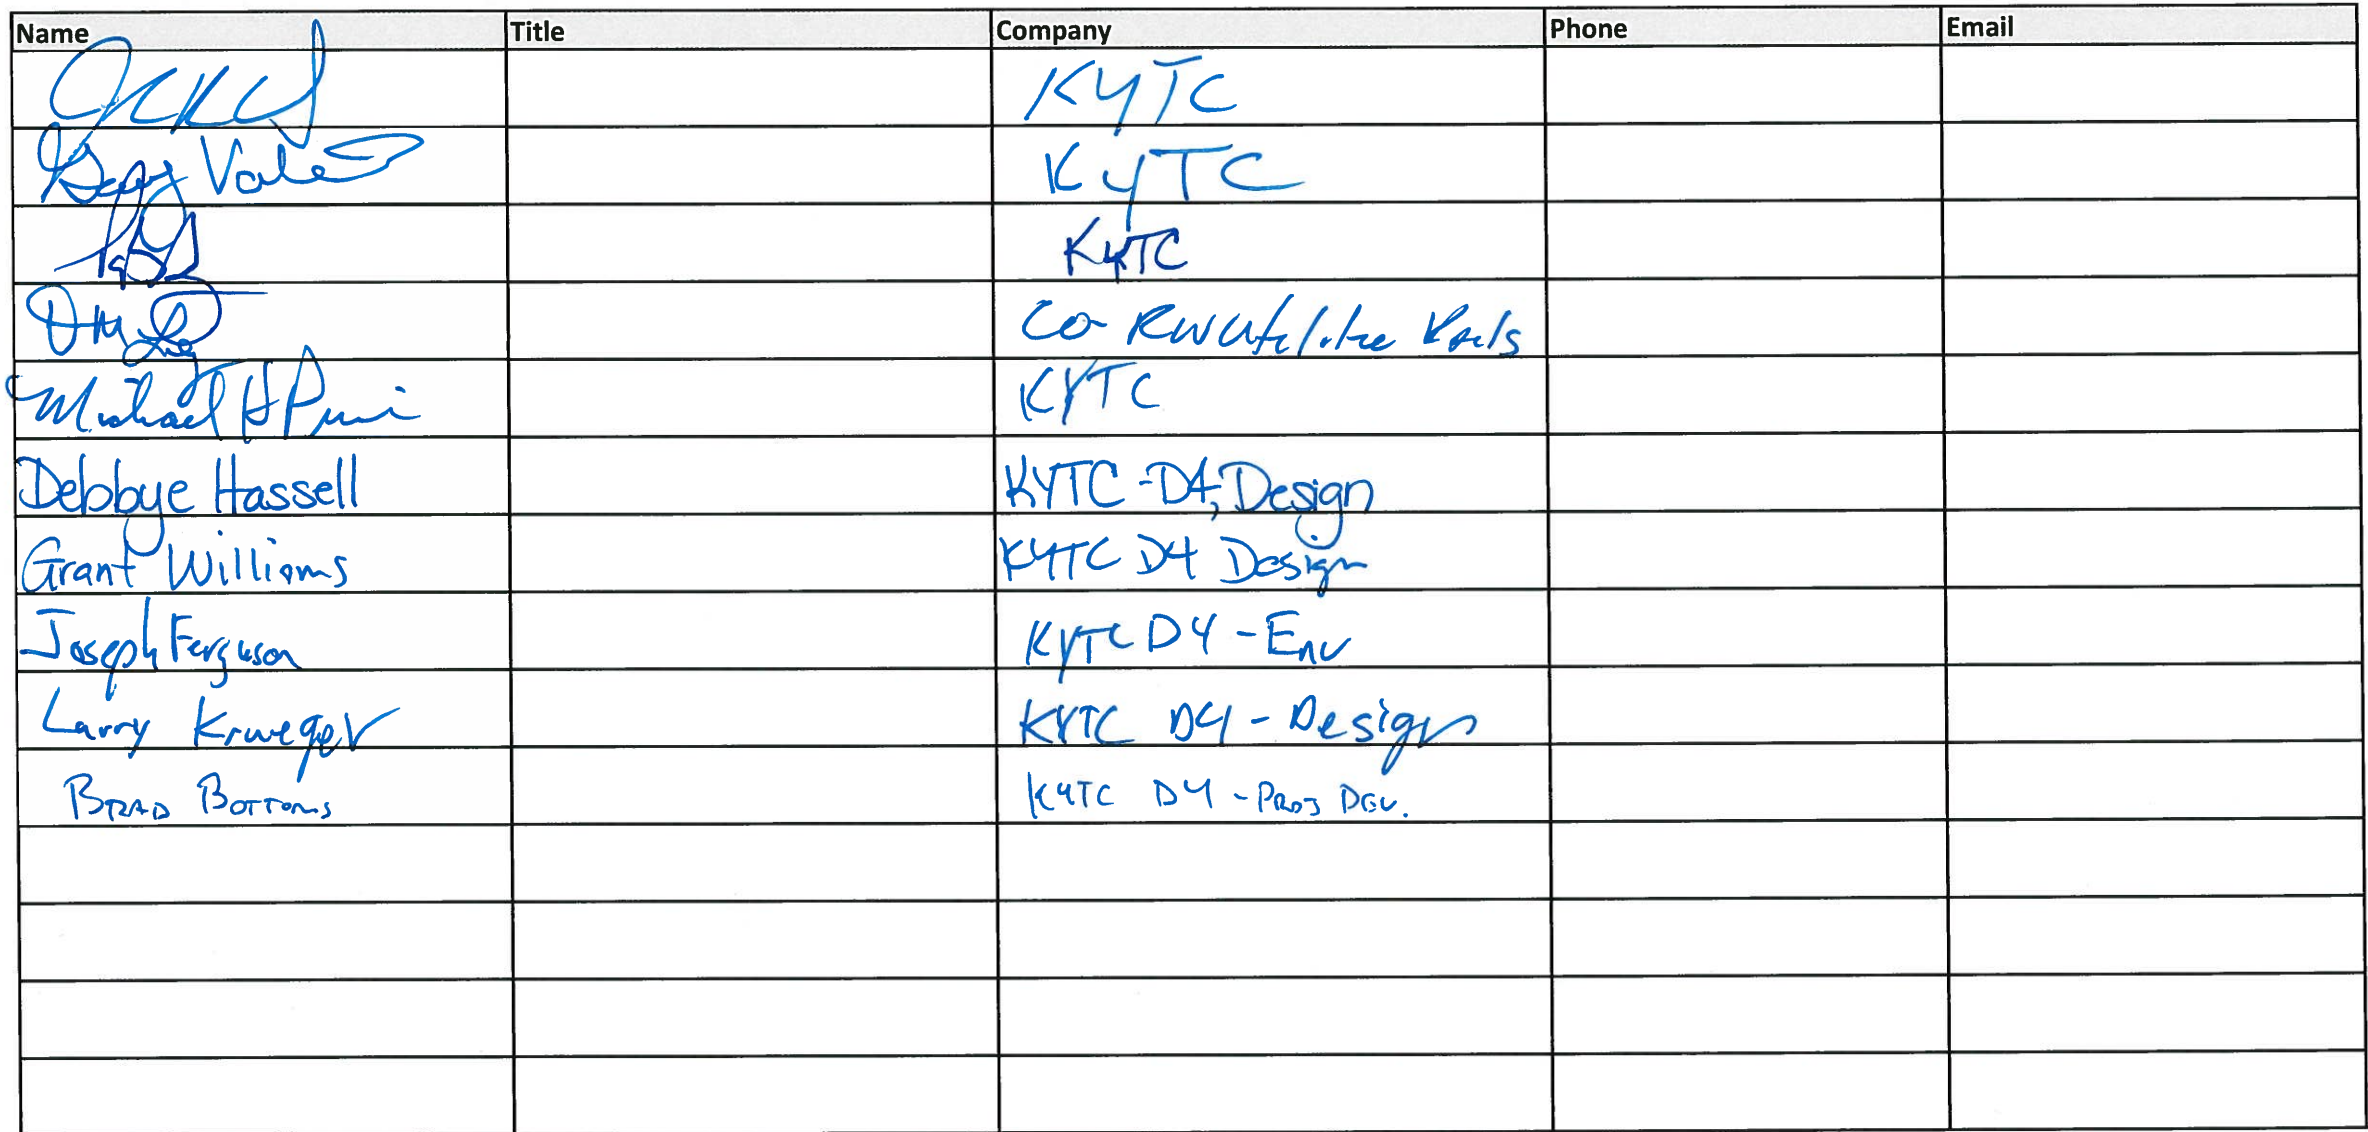 Name Title Company Phone Email
KYTC
Gary Valentine KYTC
KYTC
CO RW Utilities Rails
Michael KYTC
Debbye Hassell KYTC - D4, Design
Grant Williams KYTC D4 Design
Joseph Ferguson KYTC D4 - Env
Larry Krueger KYTC D4 - Design
BRAD BOTTOMS KYTC D4 - PROJ DEV.